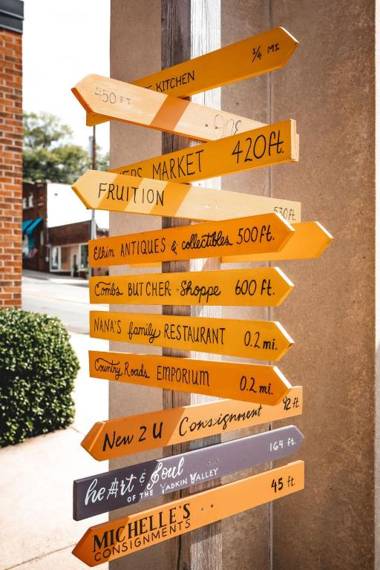 KITCHEN ¾ MI.
450 FT
MARKET 420ft.
FRUITION 530ft.
Elkin ANTIQUES & collectibles 500 ft.
Combs BUTCHER Shoppe 600 ft.
NANA'S family RESTAURANT 0.2 mi.
Country Roads EMPORIUM 0.2 mi.
New 2 U Consignment 92 ft
heArt & Soul 164 ft
OF THE YADKIN VALLEY
MICHELLE'S 45 ft
CONSIGNMENTS